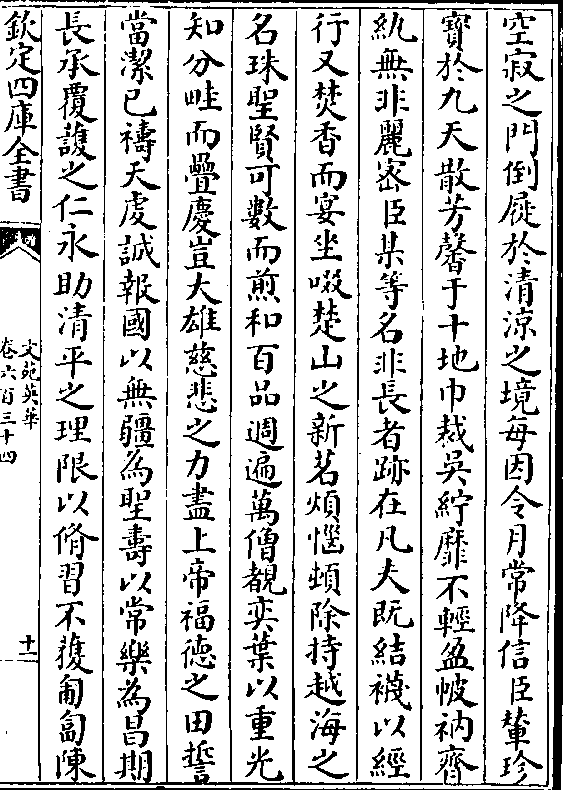 空寂之門倒屣於清涼之境每因令月常降信臣輦珍
寶於九天散芳馨于十地巾裁吳紵靡不輕盈帔衲齊
紈無非麗密臣某等名非長者跡在凡夫既結襪以經
行又焚香而宴坐啜楚山之新茗煩惱頓除持越海之
名珠聖賢可數而煎和百品週遍萬僧覩奕葉以重光
知分畦而疊慶豈大雄慈悲之力盡上帝福徳之田誓
當潔已禱天虔誠報國以無疆為聖壽以常樂為昌期
長承覆䕶之仁永助清平之理限以脩習不獲匍匐陳
欽定四庫全書
文苑英華
卷六百三十四
十一